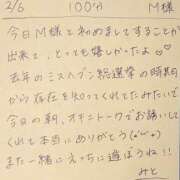 2/6 100分 M様
今日M様と初めましてすることが
出来て、とっても嬉しかったよ♡♡
去年のミスヘブン総選挙の時期
から存在を知っててくれてたみたいで
今日の朝、オキニトークでお誘いして
くれて本当にありがとう(◡‿◡)
また一緒にえっちに遊ぼうね!!
みと